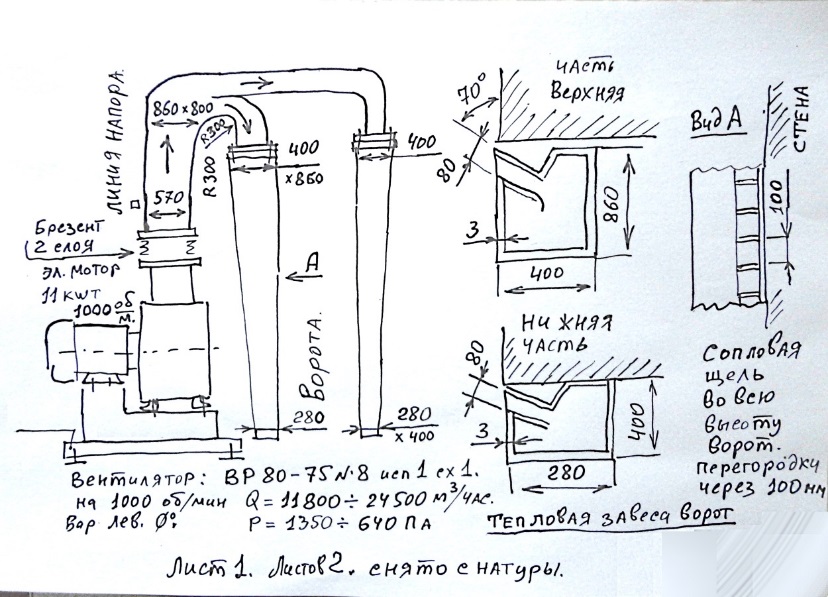 ЛИНИЯ НАПОРА.
860×800
R300
R300
570
400
×860
400
Брезент
2 слоя
эл. мотор
11 кwт
1000 об/м.
А
Ворота.
280
280
×400
Часть
Верхняя
70°
80
3
860
400
Вид А
СТЕНА
100
НИЖНЯЯ
ЧАСТЬ
80
3
400
280
Сопловая
щель
во всю
высоту
ворот.
перегородки
через 100мм
Вентилятор: ВР 80-75 №8 исп 1 сх 1.
на 1000 об/мин Q = 11800 ÷ 24500 м³/час.
Вар лев. 0°. P = 1350 ÷ 640 ПА
ТЕПЛОВАЯ ЗАВЕСА ВОРОТ
Лист 1. Листов 2. снято с натуры.